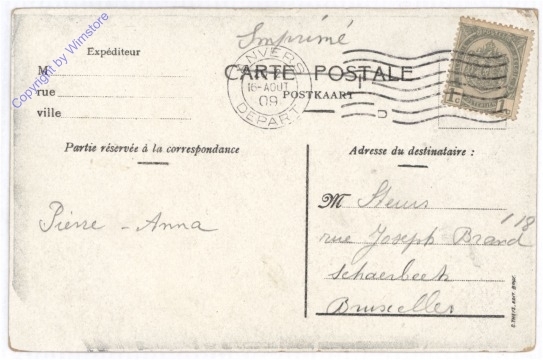 Imprimé
Expéditeur
M
rue
ville
CARTE POSTALE
POSTKAART
ANVERS
16-AOUT
09
DEPART
D
1c 1c
Partie réservée à la correspondance
Adresse du destinataire :
Pierre - Anna
M
rue Joseph Brand 118
Schaerbeek
Bruxelles
Copyright by Wimstore